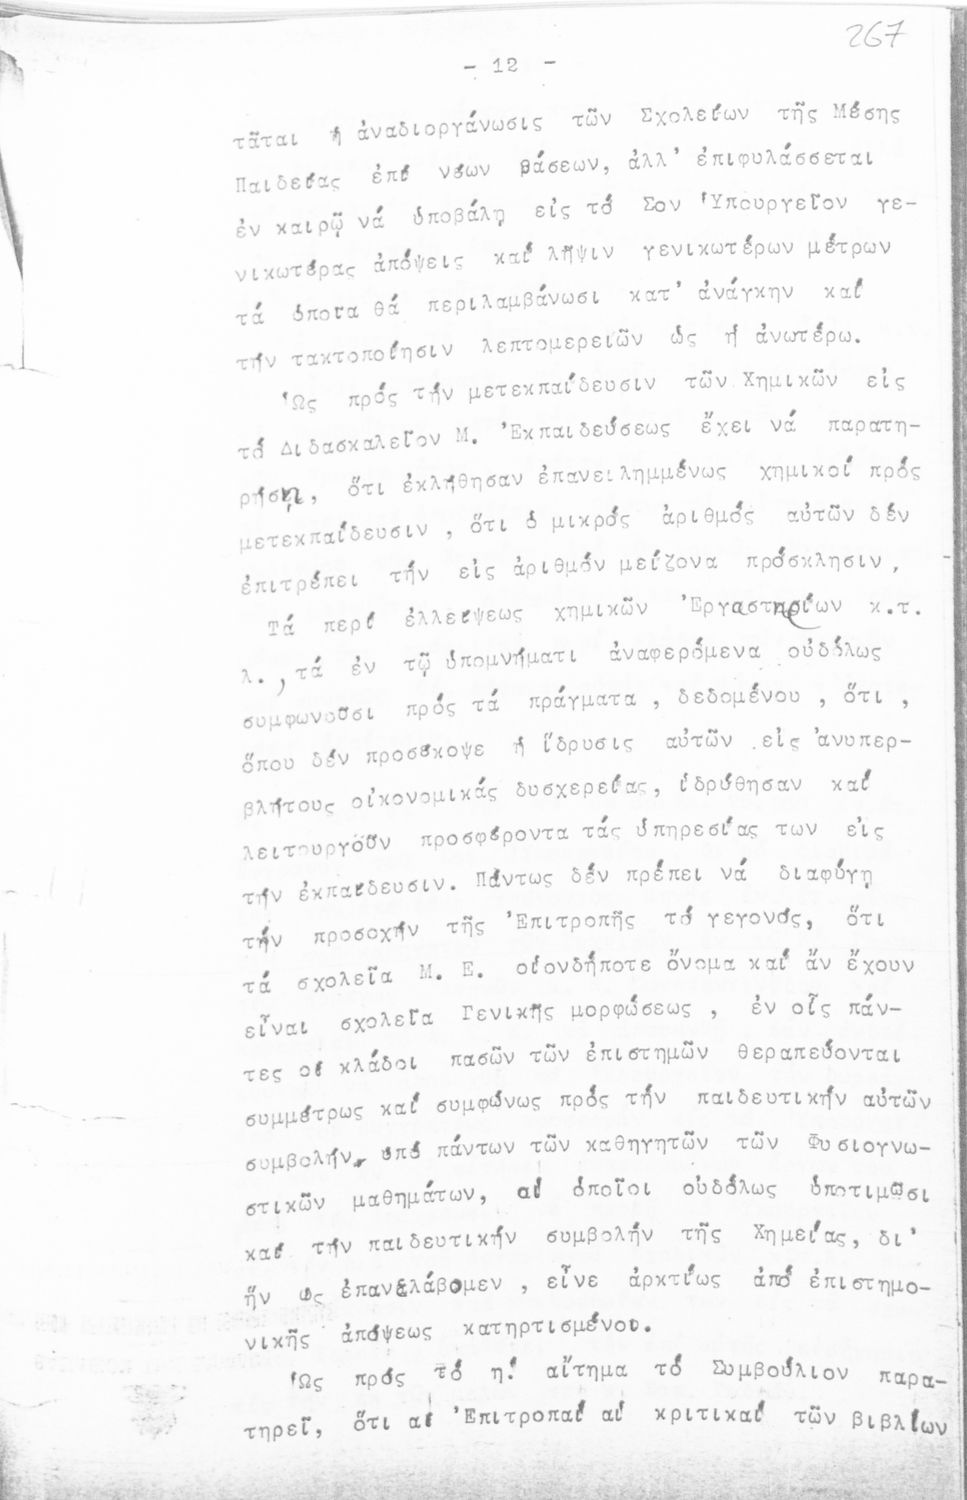 267
- 12 -
τᾶται ἡ ἀναδιοργάνωσις τῶν Σχολείων τῆς Μέσης
Παιδείας ἐπί νέων βάσεων, ἀλλ' ἐπιφυλάσσεται
ἐν καιρῷ νά ὑποβάλῃ εἰς τό Σον Ὑπουργεῖον γε-
νικωτέρας ἀπόψεις καί λῆψιν γενικωτέρων μέτρων
τά ὁποῖα θά περιλαμβάνωσι κατ' ἀνάγκην καί
τήν τακτοποίησιν λεπτομερειῶν ὡς ἡ ἀνωτέρω.
Ὡς πρός τήν μετεκπαίδευσιν τῶν Χημικῶν εἰς
τό Διδασκαλεῖον Μ. Ἐκπαιδεύσεως ἔχει νά παρατη-
ρήσῃ, ὅτι ἐκλήθησαν ἐπανειλημμένως χημικοί πρός
μετεκπαίδευσιν, ὅτι ὁ μικρός ἀριθμός αὐτῶν δέν
ἐπιτρέπει τήν εἰς ἀριθμόν μείζονα πρόσκλησιν,
Τά περί ἐλλείψεως χημικῶν Ἐργαστηρίων κ.τ.
λ., τά ἐν τῷ ὑπομνήματι ἀναφερόμενα οὐδόλως
συμφωνοῦσι πρός τά πράγματα, δεδομένου, ὅτι,
ὅπου δέν προσέκοψε ἡ ἵδρυσις αὐτῶν εἰς ἀνυπερ-
βλήτους οἰκονομικάς δυσχερείας, ἱδρύθησαν καί
λειτουργοῦν προσφέροντα τάς ὑπηρεσίας των εἰς
τήν ἐκπαίδευσιν. Πάντως δέν πρέπει νά διαφύγῃ
τήν προσοχήν τῆς Ἐπιτροπῆς τό γεγονός, ὅτι
τά σχολεῖα Μ. Ε. οἱονδήποτε ὄνομα καί ἄν ἔχουν
εἶναι σχολεῖα Γενικῆς μορφώσεως, ἐν οἷς πάν-
τες οἱ κλάδοι πασῶν τῶν ἐπιστημῶν θεραπεύονται
συμμέτρως καί συμφώνως πρός τήν παιδευτικήν αὐτῶν
συμβολήν, ὑπό πάντων τῶν καθηγητῶν τῶν Φυσιογνω-
στικῶν μαθημάτων, αἱ ὁποῖοι οὐδόλως ὑποτιμῶσι
καί τήν παιδευτικήν συμβολήν τῆς Χημείας, δι'
ἥν ὡς ἐπανελάβομεν, εἶνε ἀρκτίως ἀπό ἐπιστημο-
νικῆς ἀπόψεως κατηρτισμένοι.
Ὡς πρός τό η! αἴτημα τό Συμβούλιον παρα-
τηρεῖ, ὅτι αἱ Ἐπιτροπαί αἱ κριτικαί τῶν βιβλίων